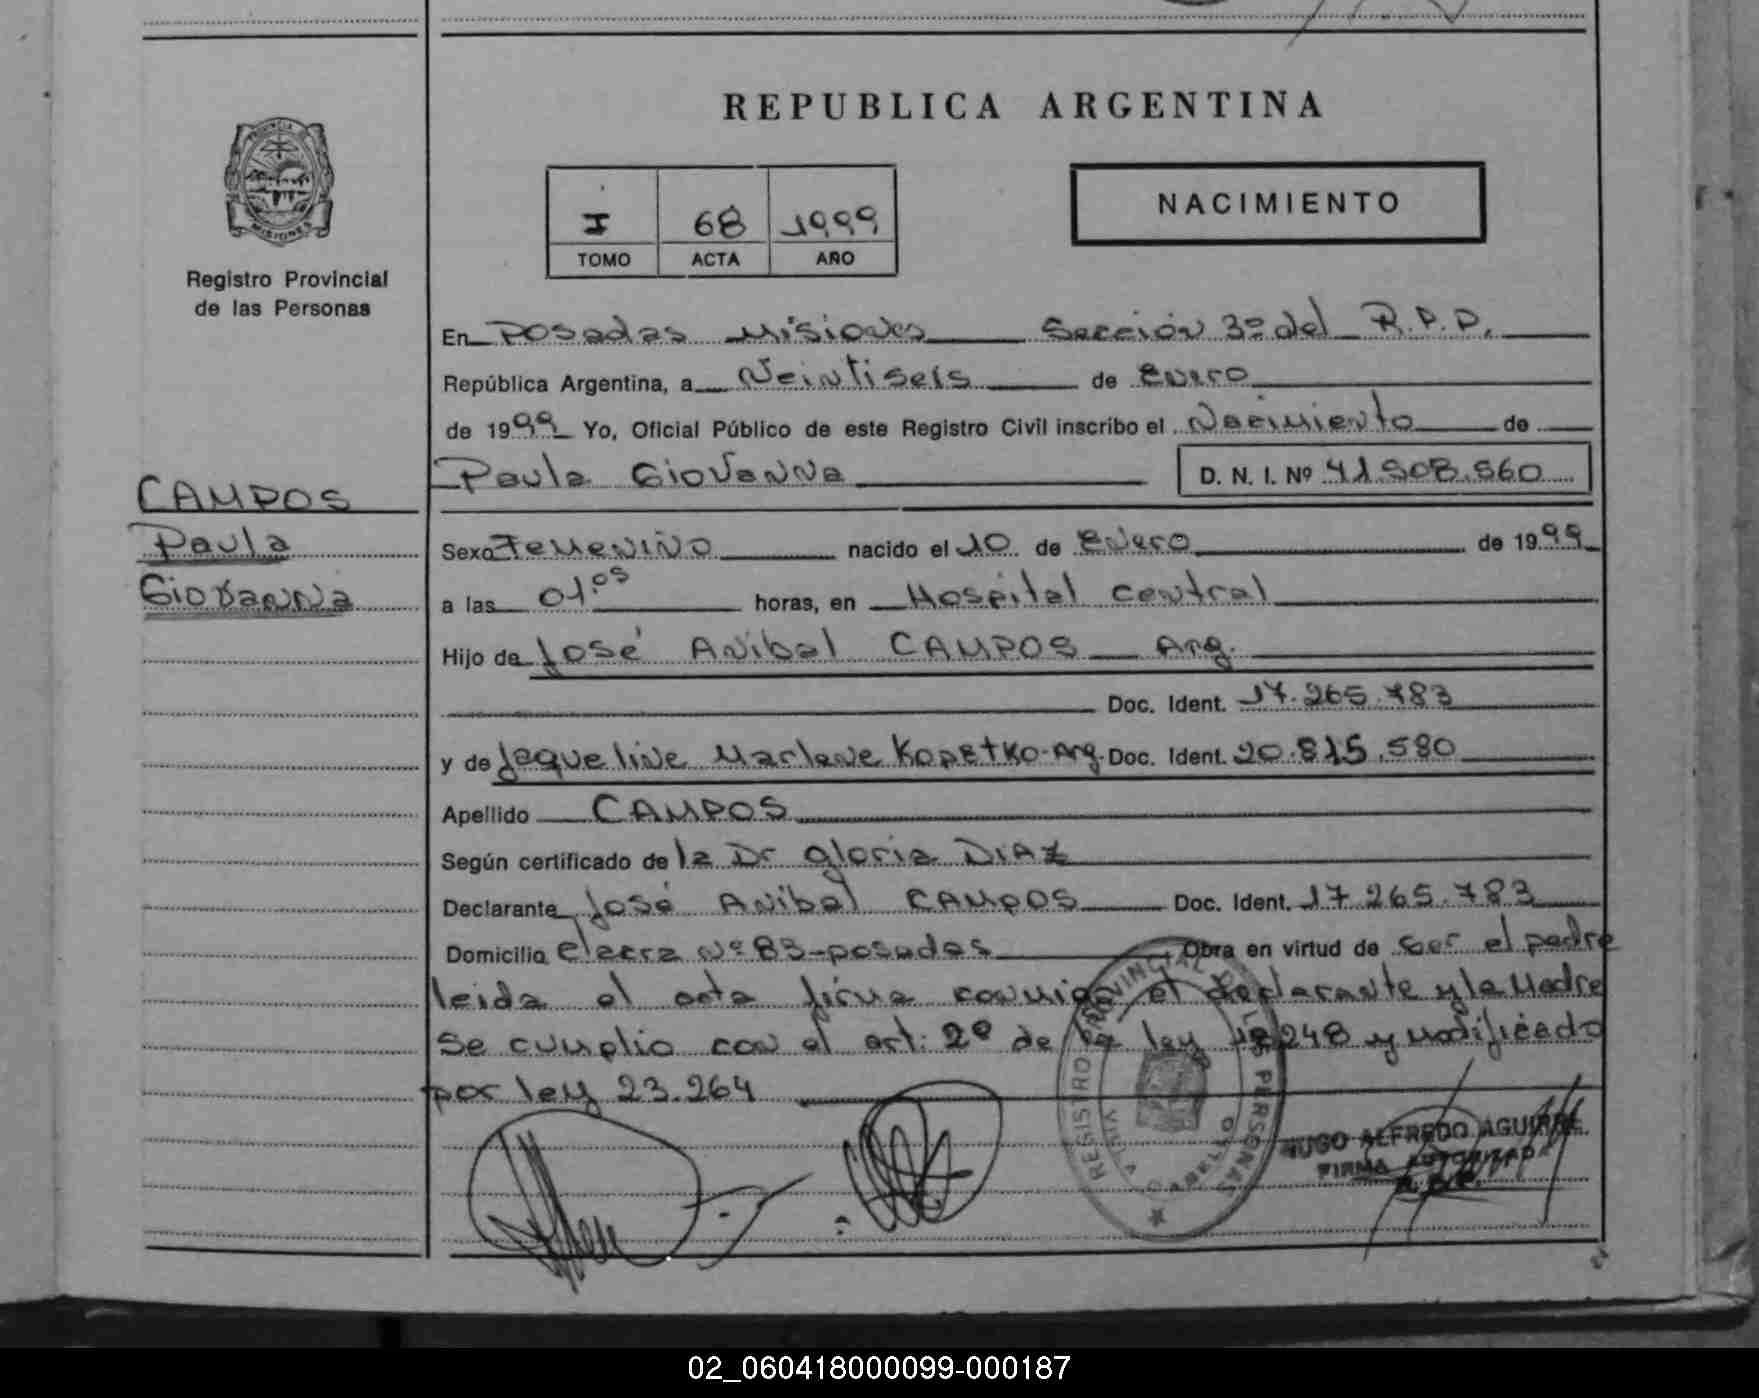 REPUBLICA ARGENTINA
PROVINCIA DE
MISIONES
Registro Provincial
de las Personas
I 68 1999
TOMO ACTA AÑO
NACIMIENTO
En Posadas Misiones Sección 3º del R.P.P.
República Argentina, a Veintiseis de Enero
de 1999 Yo, Oficial Público de este Registro Civil inscribo el Nacimiento de
Paula Giovanna D. N. I. Nº 41.908.560
CAMPOS
Paula
Giovanna
Sexo Femenino nacido el 10 de Enero de 1999
a las 01.05 horas, en Hospital Central
Hijo de José Anibal CAMPOS Arg.
Doc. Ident. 17.265.783
y de Jaqueline Marlene Kopetko-Arg. Doc. Ident. 20.815.580
Apellido CAMPOS
Según certificado de la Dr Gloria DIAZ
Declarante José Anibal CAMPOS Doc. Ident. 17.265.783
Domicilio Nº 83-posadas Obra en virtud de ser el padre
leida el acta firma conmigo el declarante y la Madre
Se cumplio con el art: 2º de la ley 18248 y modificado
por ley 23.264
REGISTRO PROVINCIAL DE LAS PERSONAS
HUGO ALFREDO AGUIRRE
FIRMA AUTORIZADA
02_060418000099-000187